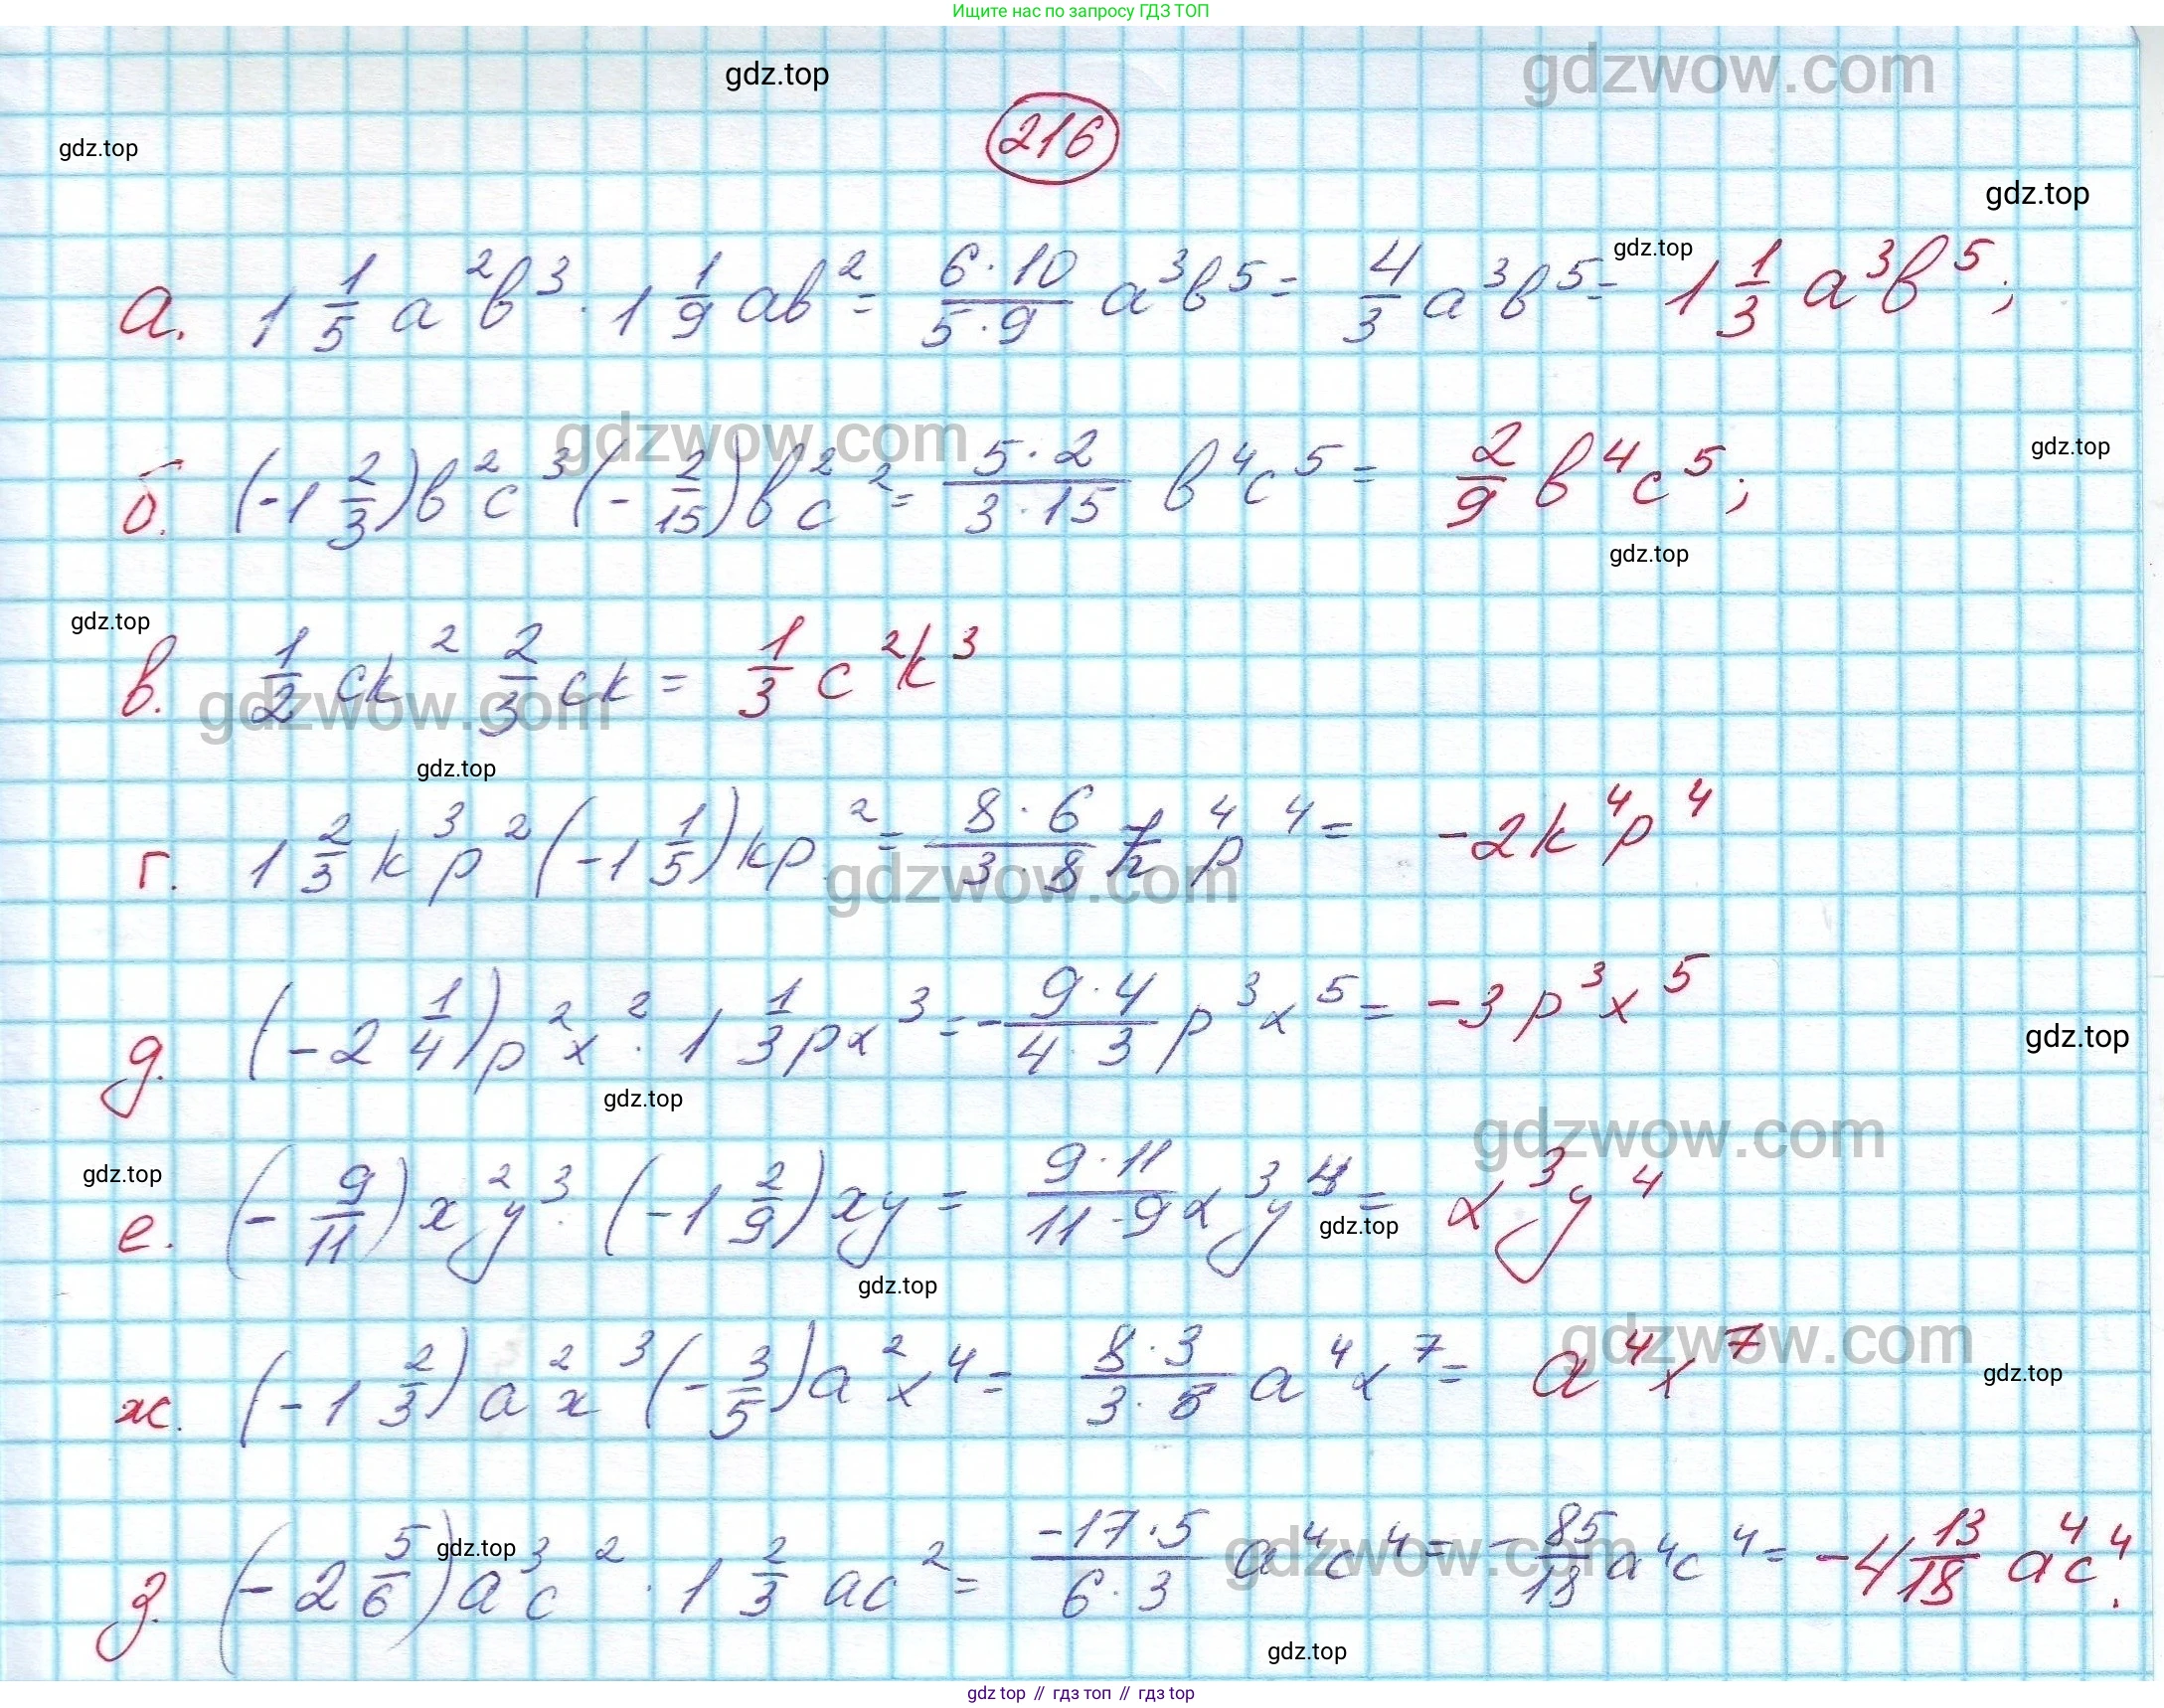 Ищите нас по запросу ГДЗ ТОП
gdzwow.com
gdz.top
216
gdz.top
gdz.top
gdz.top
а. 1 1/5 a²b³ · 1 1/9 ab² = (6·10)/(5·9) a³b⁵ = 4/3 a³b⁵ = 1 1/3 a³b⁵;
gdzwow.com
gdz.top
б. (-1 2/3)b²c³(-2/15)b²c² = (5·2)/(3·15) b⁴c⁵ = 2/9 b⁴c⁵;
gdz.top
gdz.top
в. 1/2 ck² 2/3 ck = 1/3 c²k³
gdzwow.com
gdz.top
г. 1 2/3 k³p²(-1 1/5)kp² = (8·6)/(3·8) k⁴p⁴ = -2k⁴p⁴
gdzwow.com
д. (-2 1/4)p²x² · 1 1/3 px³ = -(9·4)/(4·3) p³x⁵ = -3p³x⁵
gdz.top
gdz.top
gdzwow.com
gdz.top
е. (-9/11)x²y³ · (-1 2/9)xy = (9·11)/(11·9) x³y⁴ = x³y⁴
gdz.top
gdz.top
gdzwow.com
gdz.top
ж. (-1 2/3)a²x³(-3/5)a²x⁴ = (8·3)/(3·8) a⁴x⁷ = a⁴x⁷
gdz.top
gdzwow.com
з. (-2 5/6)a³c² · 1 2/3 ac² = (-17·5)/(6·3) a⁴c⁴ = -85/18 a⁴c⁴ = -4 13/18 a⁴c⁴.
gdz.top
gdz top // гдз топ // gdz top